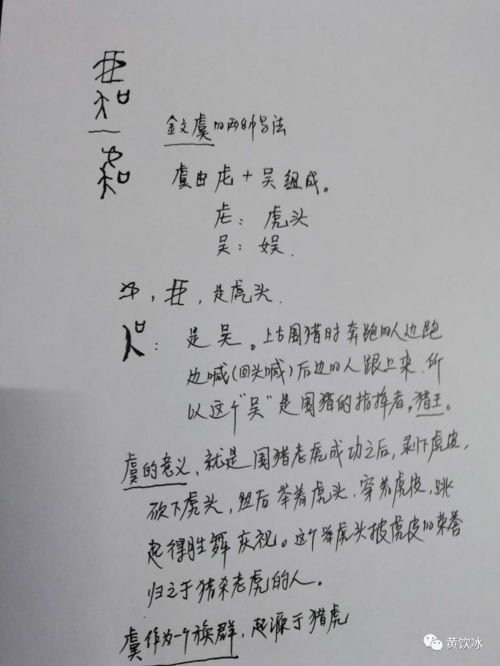 金文虞的两种写法
虞由虍+吴组成。
虍：虎头
吴：娱.
，是虎头.
：是吴。上古围猎时奔跑的人边跑
边喊(回头喊)后边的人跟上来.所
以这个"吴"是围猎的指挥者,猎王。
虞的意义，就是围猎老虎成功之后,剥下虎皮,
砍下虎头，然后举着虎头.穿着虎皮,跳
起得胜舞庆祝。这个举虎头披虎皮的荣誉
归之于猎杀老虎的人。
虞作为一个族群,起源于猎虎
黄饮冰